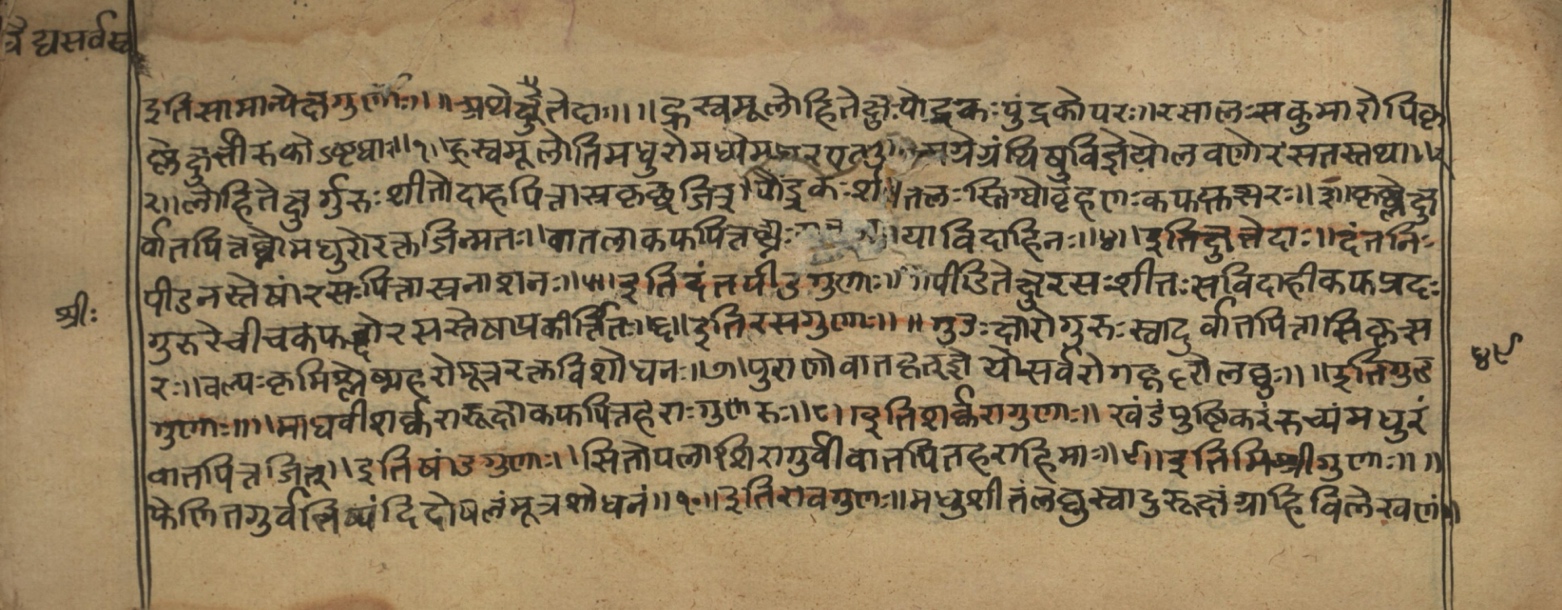 वैद्यसर्वस्व
इतिसामान्येक्षुगुणाः॥॥अथेक्षुभेदाः॥॥ह्रस्वमूलोहितेक्षुःपौंड्रकःपुंड्रकोपरः॥रसालःसकुमारोपिकृ
ष्णेक्षुर्भीरुकोऽष्टधा॥१॥ह्रस्वमूलोतिमधुरोमध्येमधुर अग्रेग्रंथिषुविज्ञेयोलवणोरसतस्तथा॥
२॥लोहितेक्षुर्गुरुःशीतोदाहपित्तास्रकृछ्रजित्॥पौंड्रकःशीतलःस्निग्धोबृंहणःकफकृत्सरः॥३॥कृष्णेक्षु
र्वातपित्तघ्नोमधुरोरक्तजिन्मतः॥वातलाकफपित्तघ्नाः याविदाहिनः॥४॥इतिक्षुभेदाः॥दंतनिः
पीडनस्तेषांरसःपित्तास्रनाशनः॥५॥इतिदंतपीडगुणाः॥पीडितेक्षुरसःशीतःसविदाहीकफप्रदः
श्रीः
गुरुरेचीचकफहृोरसस्तेषांप्रकीर्त्तितः॥६॥इतिरसगुणाः॥॥गुडःक्षारोगुरुःस्वादुर्वातपित्तास्रिकृत्स
४९
रः॥वल्यःकृमिश्लेष्महरोमूत्ररक्तविशोधनः॥७॥पुराणोवातहृत्ज्ञेयोसर्वरोगहरोलघुः॥॥इतिगुड
गुणाः॥॥माधवीशर्क्करारूक्षाकफपित्तहरागुरुः॥८॥इतिशर्करागुणाः॥खंडंपुष्टिकरंरुच्यंमधुरं
वातपित्तजित्॥इतिषांडगुणाः॥सितोपलाशिरागुर्वीवातपितहराहिमाः॥९॥इतिमिश्रीगुणाः॥॥
फेलितगुर्वभिष्यंदिदोषलंमूत्रशोधनं॥१०॥इतिरावगुणः॥मधुशीतंलघुस्वादुरूक्षंग्राहिविलेखणं॥